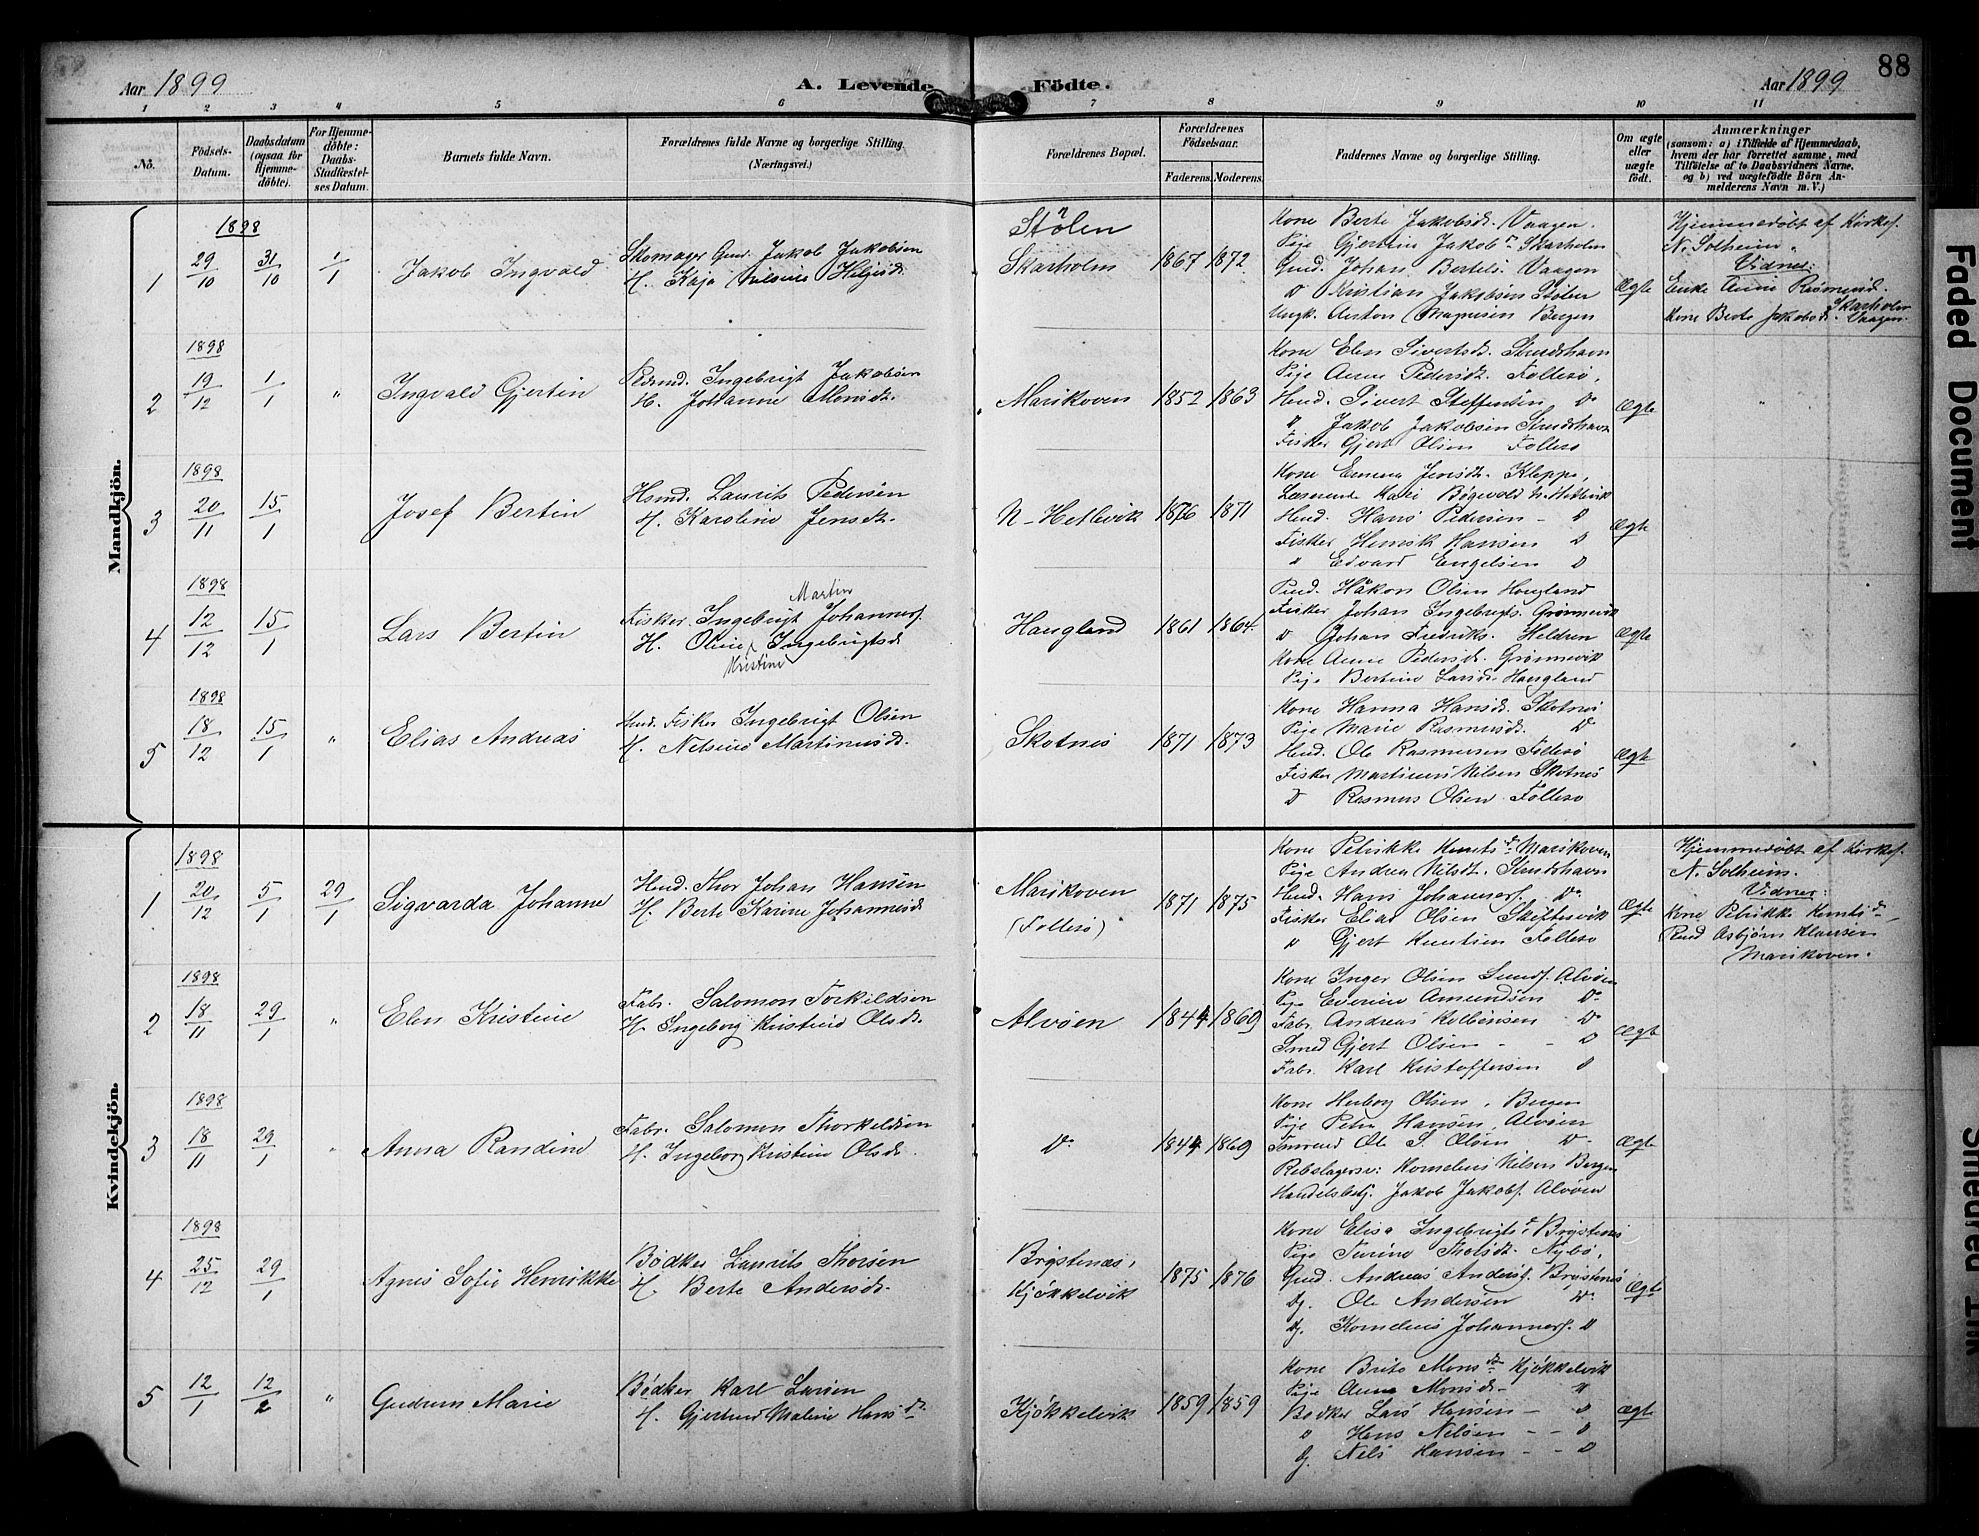 88
Aar 1899
A. Levende Födte.
Aar 1899
1 2 3 4 5 6 7 8 9 10 11
No.
Födsels-Datum.
Daabsdatum (ogsaa for Hjemmedöbte).
For Hjemmedöbte: Daabs-Stadfæstelses Datum.
Barnets fulde Navn.
Forældrenes fulde Navne og borgerlige Stilling.
(Næringsvei.)
Forældrenes Bopæl.
Forældrenes Födselsaar.
Faderens. Moderens.
Faddernes Navne og borgerlige Stilling.
Om ægte eller uægte födt.
Anmærkninger
(saasom: a) i Tilfælde af Hjemmedaab,
hvem der har forrettet samme, med
Tilföielse af to Daabsvidners Navne,
og b) ved uægtefödte Börn Anmelderens Navn m. V.)
Mandkjön.
1898
1 29/10 31/10 1/1 Jakob Ingvald
Skomager Gmd. Jakob Jakobsen
H. Kaja Nilsine Heljesd.
Stølen
Skarholm 1867 1872
Kone Berte Jakobsd. Vaagen
Pige Gjertine Jakobsd. Skarholm
Gmd. Johan Bertels. Vaagen
D Kristian Jakobsen Stølen
Ungk. Anton Magnesen Bergen
Ægte
Hjemmedøbt af Kirkes.
N. Solheim.
Vidner:
Enke Anne Rasmusd. Skarholm
Kone Berte Jakobsd. Vaagen.
1898
2 19/12 1/1 " Ingvald Gjertin
Pdsmd. Ingebrigt Jakobsen
H. Johanne Monsdt.
Marikoven 1852 1863
Kone Elen Sivertsdt. Strudshavn
Pige Anne Pedersdt. Follesø,
Hmd. Sivert Steffensen Do
D Jakob Jakobsen Strudshavn
Fisker Gjert Olsen Follesø
Ægte "
1898
3 20/11 15/1 Josef Bertin
Hsmd. Laurits Pedersen
H. Karoline Jensdt.
N-Hetlevik 1876 1871
Kone Emma Jensdt. Kleppe,
Lærerinde Kari Bøgevold N. Hetlevik
Hmd. Hans Pedersen - D
Fisker Henrik Hansen D
" Edvard Engelsen D
Ægte
1898
4 12/12 15/1 Lars Bertin
Martin
Fisker Ingebrigt Johannes.
H. Oline Ingebrigtsd.
Kristine
Haugland 1861 1864.
Pmd. Håkon Olsen Haugland
Fisker Johan Ingebrigts. Grønnevik
D Johan Fredriks. Heldren
Kone Anne Pedersdt. Grønnevik
Pige Bertine Larsd. Haugland
Ægte
1898
5 18/12 15/1 " Elias Andreas
Hmd. Fisker Ingebrigt Olsen
H. Nelsine Martinusd.
Skotnes 1871 1873
Kone Hanna Hansd. Skotnes
Pige Marie Rasmusd. D
Hmd. Ole Rasmussen Follesø
Fisker Martinus Nilsen Skotnes
D Rasmus Olsen Follesø
Ægte
Kvindekjön.
1898
1 20/12 5/1 29/1 Sigvarda Johanne
Hmd. Thor Johan Hansen
H. Berte Karine Johannesd.
Marikoven
(Follesø) 1871 1875
Kone Petrikke Knutsd. Marikoven
Pige Andrea Nilsdt. Strudshavn
Hmd. Hans Johannes. Do
Fisker Elias Olsen Skiftesvik
" Gjert Knutsen Follesø
Ægte
Hjemmedøbt af Kirkes.
N. Solheim.
Vidner:
Kone Petrikke Knutsd.
Pmd Asbjørn Klausen
Marikoven.
1898
2 18/11 29/1 " Elen Kristine
Fabr. Salomon Torkildsen
H. Ingeborg Kristine Olsd.
Alvøen 1844 1860
Kone Inger Olsen Sunds. Alvøen
Pige Everine Amundsen Do
Fabr. Andreas Kolbensen Do
Smed Gjert Olsen - - D
Fabr. Karl Kristoffersen D
Ægte
1898
3 18/11 29/1 " Anna Randine
Fabr. Salomon Thorkildsen
H. Ingeborg Kristine Olsd.
Do 1844 1860
Kone Herborg Olsen, Bergen
Pige Petra Hansen, Alvøen
Ole S. Olsen Do
Rebslagersv: Kornelius Nilsen Bergen
Handelsbetj. Jakob Jakobs. Alvøen
Ægte
1898
4 25/12 29/1 Agnes Sofie Henrikke
Bødker Laurits Thorsen
H. Berte Andersd.
Brøstenæs,
Kjøkkelvik 1875 1876
Kone Elisa Ingebrigtsd. Brøstenes
Pige Turine Thorsdt. Nybø,
Gmd. Andreas Anders. Brøstenes
Dg. Ole Andersen Do
Dg. Kornelius Johannes. D
Ægte
5 12/1 12/2 " Gudrun Marie
Bødker Karl Larsen
H. Gjertrud Malene Hansd.
Kjøkkelvik 1859 1859
Kone Brite Monsd. Kjøkkelvik
Pige Anna Monsd. - D
Bødker Lars Hansen - D
D Hans Nilsen - - D
Dg. Nils Hansen - - D
Ægte
Faded Document
Smeared Ink